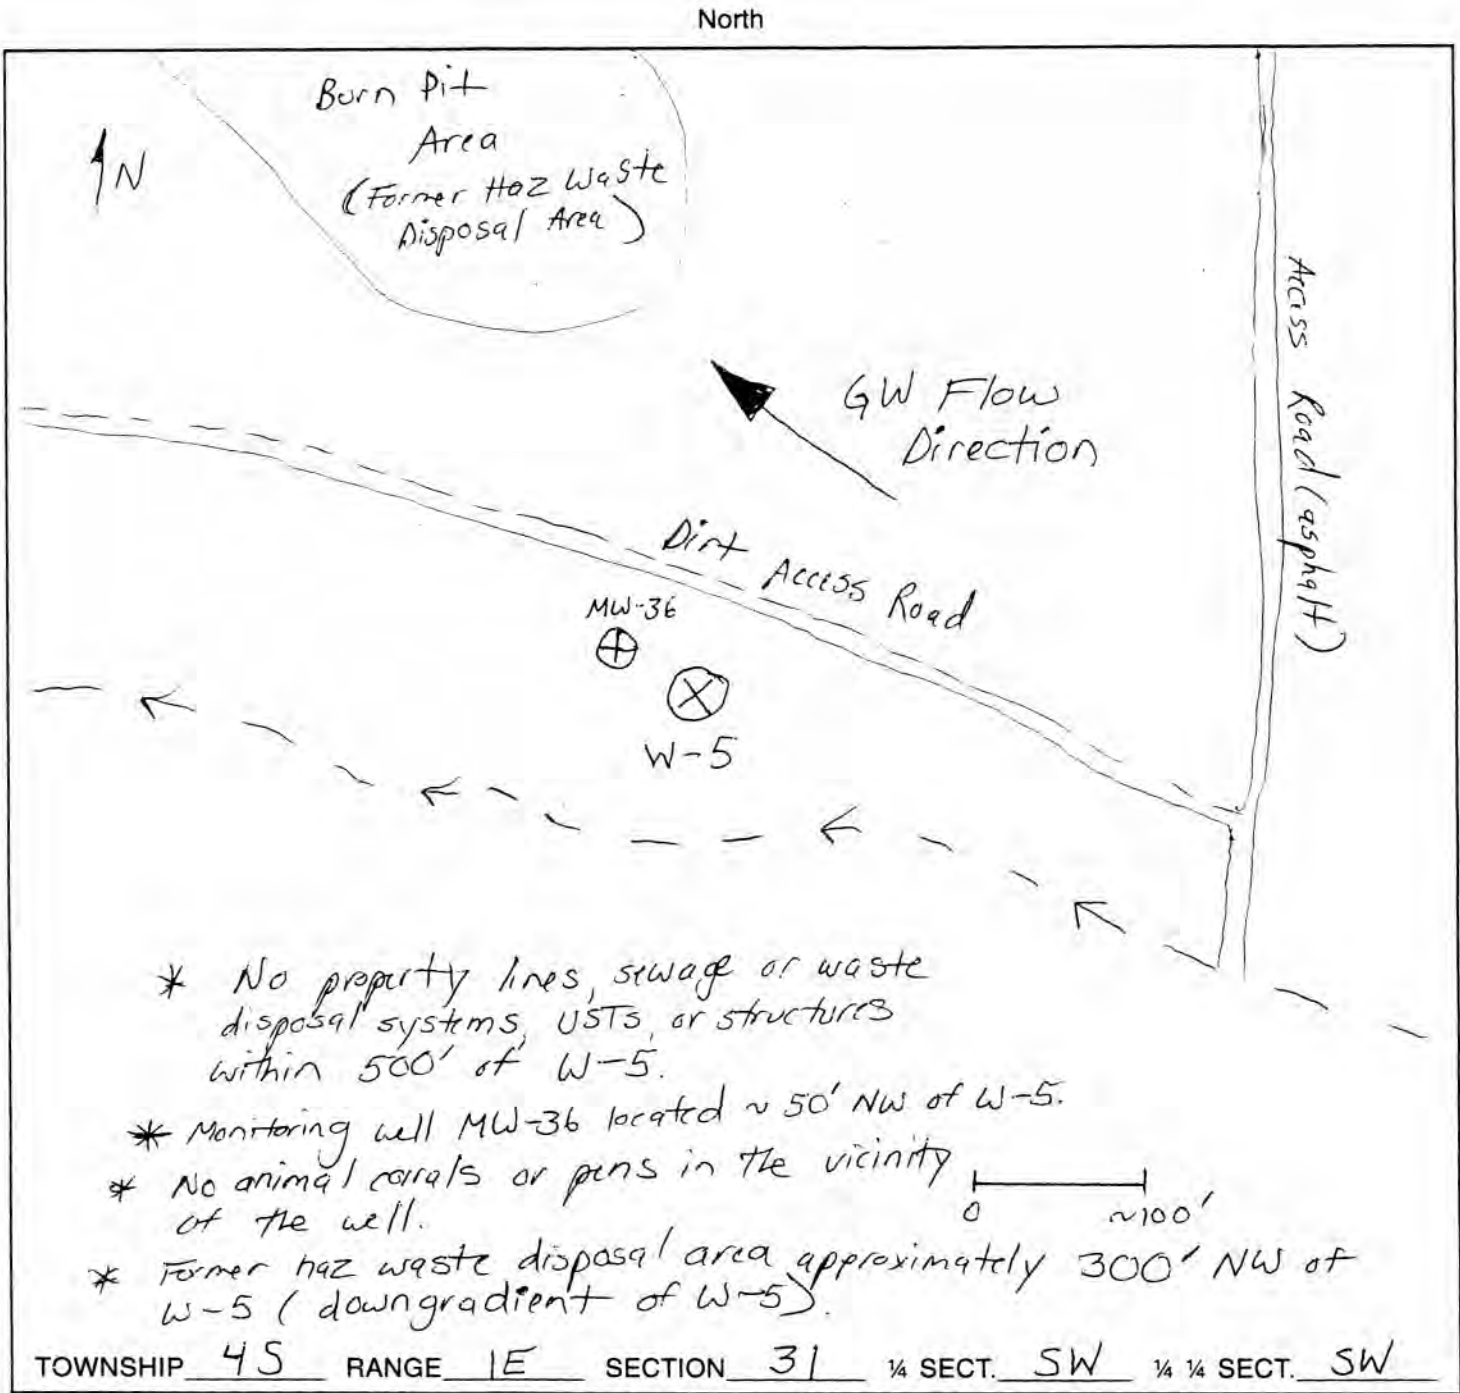 North
Burn Pit
Area
(Former Haz Waste
Disposal Area)
N
Access Road (asphalt)
GW Flow
Direction
Dirt Access Road
MW-36
W-5
* No property lines, sewage or waste
disposal systems, USTs, or structures
within 500' of W-5.
* Monitoring well MW-36 located ~ 50' NW of W-5.
* No animal corrals or pens in the vicinity
of the well.
0 ~100'
* Former haz waste disposal area approximately 300' NW of
W-5 (downgradient of W-5).
TOWNSHIP 4S RANGE 1E SECTION 31 ¼ SECT. SW ¼ ¼ SECT. SW